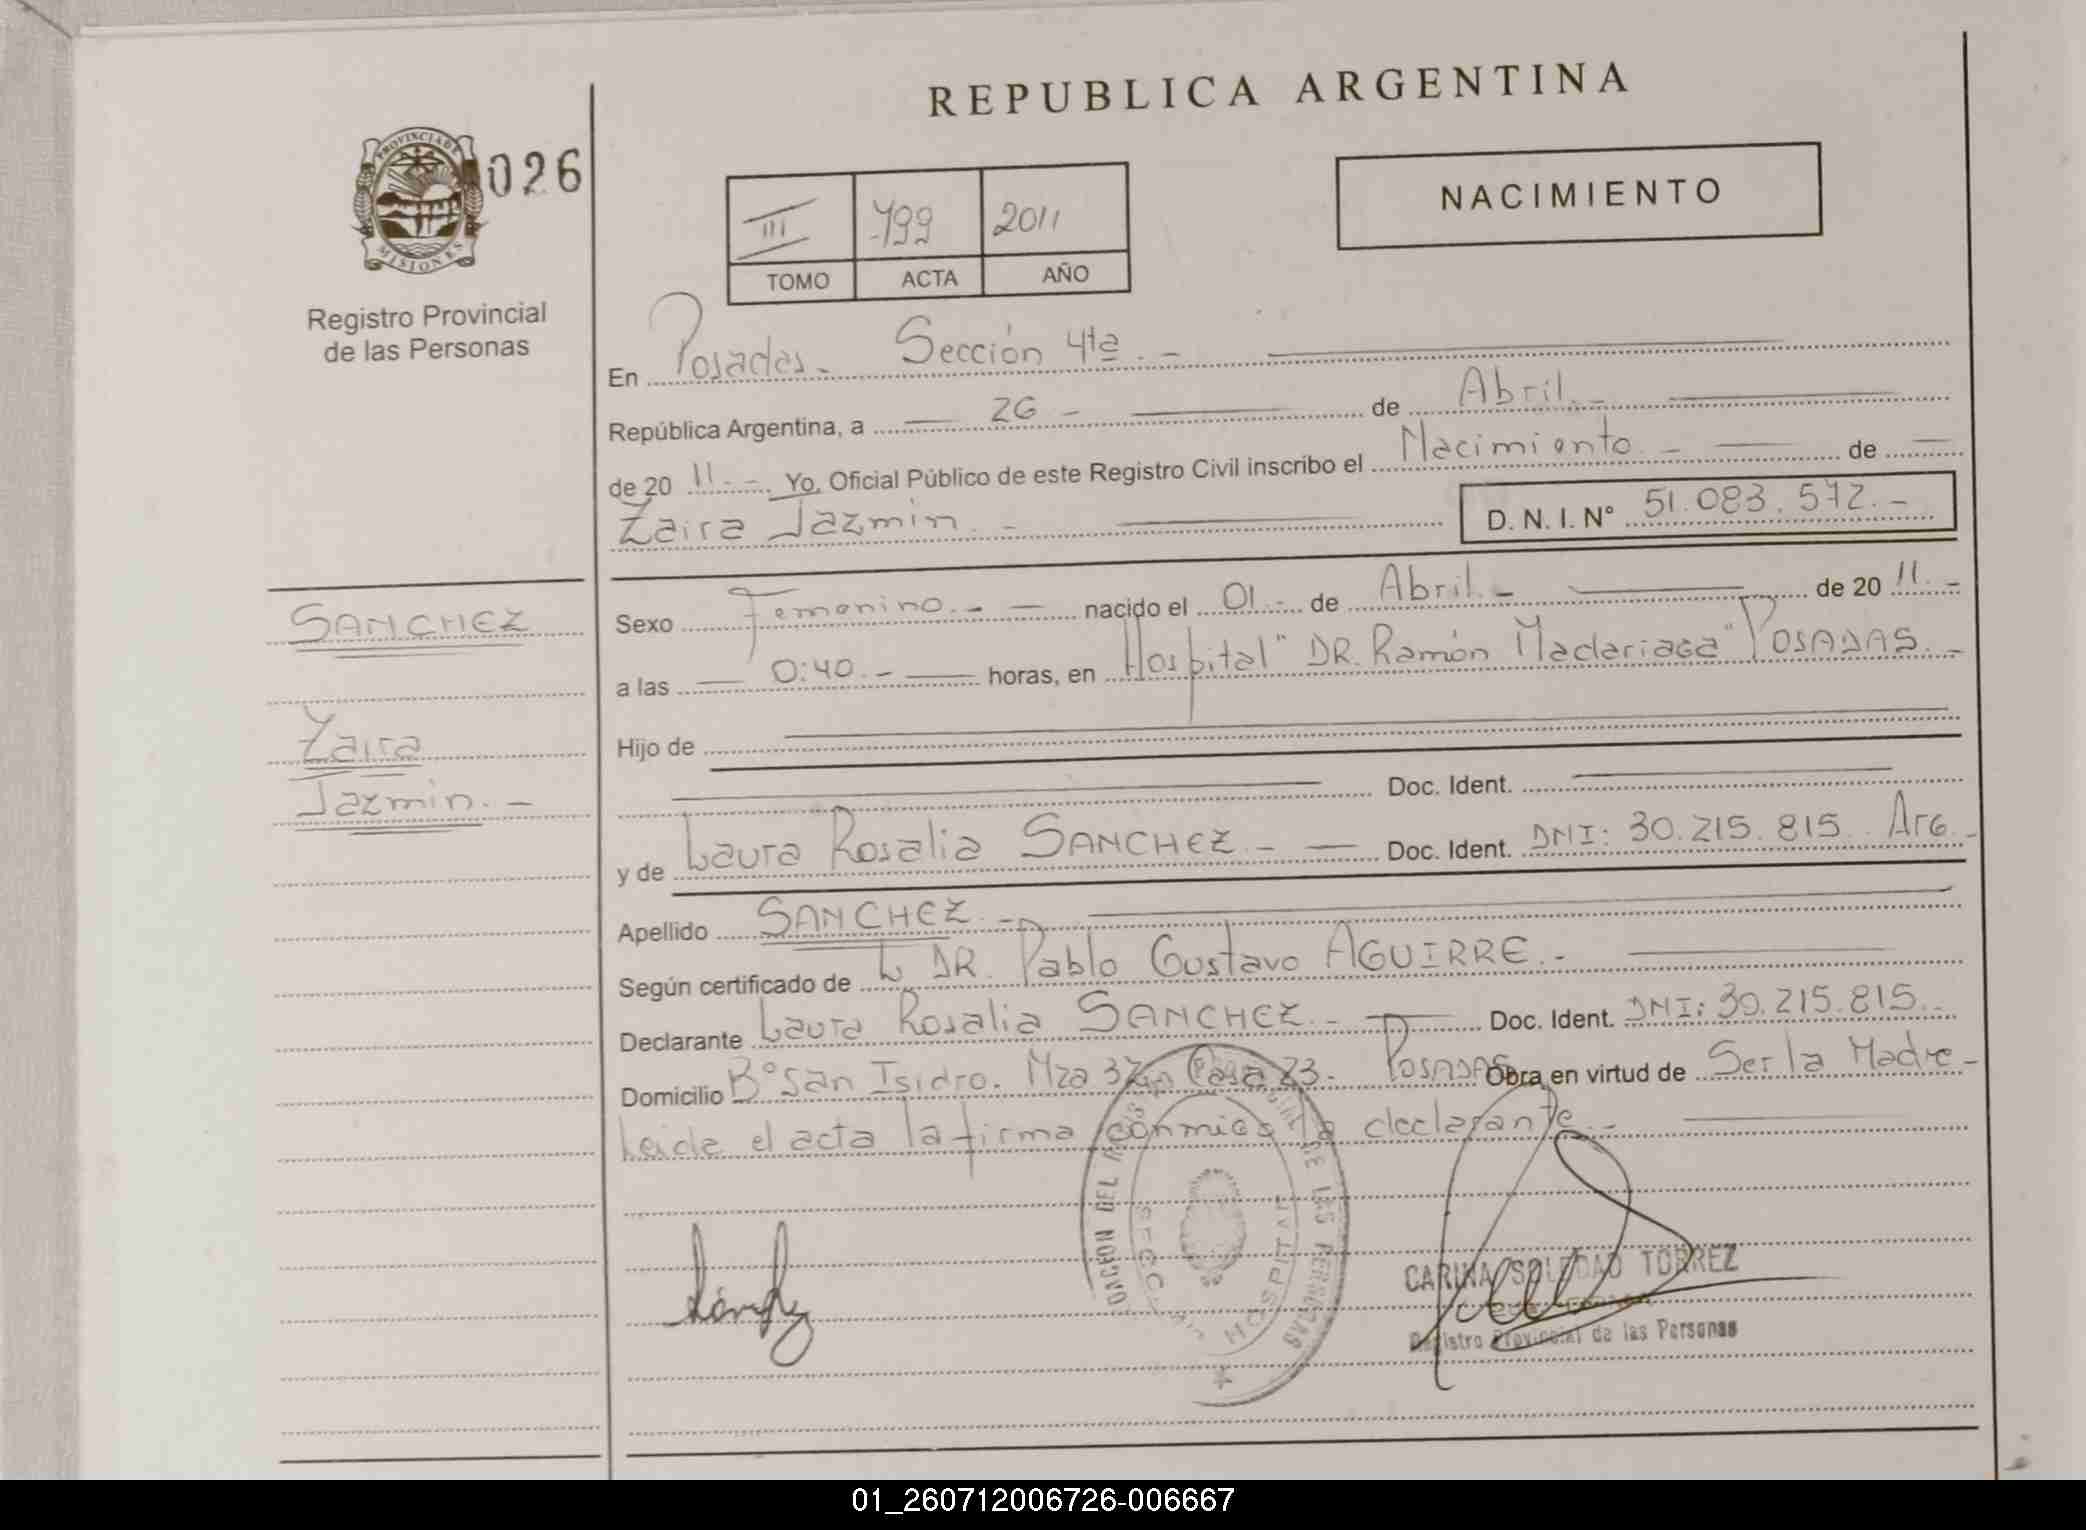 REPUBLICA ARGENTINA
PROVINCIA DE
MISIONES
026
III 799 2011
TOMO ACTA AÑO
NACIMIENTO
Registro Provincial
de las Personas
En Posadas. Sección 4ta. -
República Argentina, a 26 - de Abril. -
de 2011. - Yo, Oficial Público de este Registro Civil inscribo el Nacimiento. - de
Zaira Jazmin. - D. N. I. Nº 51.083.572. -
SANCHEZ
Zaira
Jazmin. -
Sexo Femenino. - nacido el 01. - de Abril. - de 2011. -
a las 0:40. - horas, en Hospital "DR. Ramón Madariaga" POSADAS. -
Hijo de
Doc. Ident.
y de Laura Rosalia SANCHEZ. - Doc. Ident. DNI: 30.215.815. Arg. -
Apellido SANCHEZ. -
Según certificado de DR. Pablo Gustavo AGUIRRE. -
Declarante Laura Rosalia SANCHEZ. - Doc. Ident. DNI: 30.215.815. -
Domicilio Bº San Isidro. Mza Casa 23. POSADAS Obra en virtud de Ser la Madre -
Leida el acta la firma conmigo la declarante. -
DE LAS PERSONAS
HOSPITAL
CARINA SOLEDAD TORREZ
Registro Provincial de las Personas
01_260712006726-006667